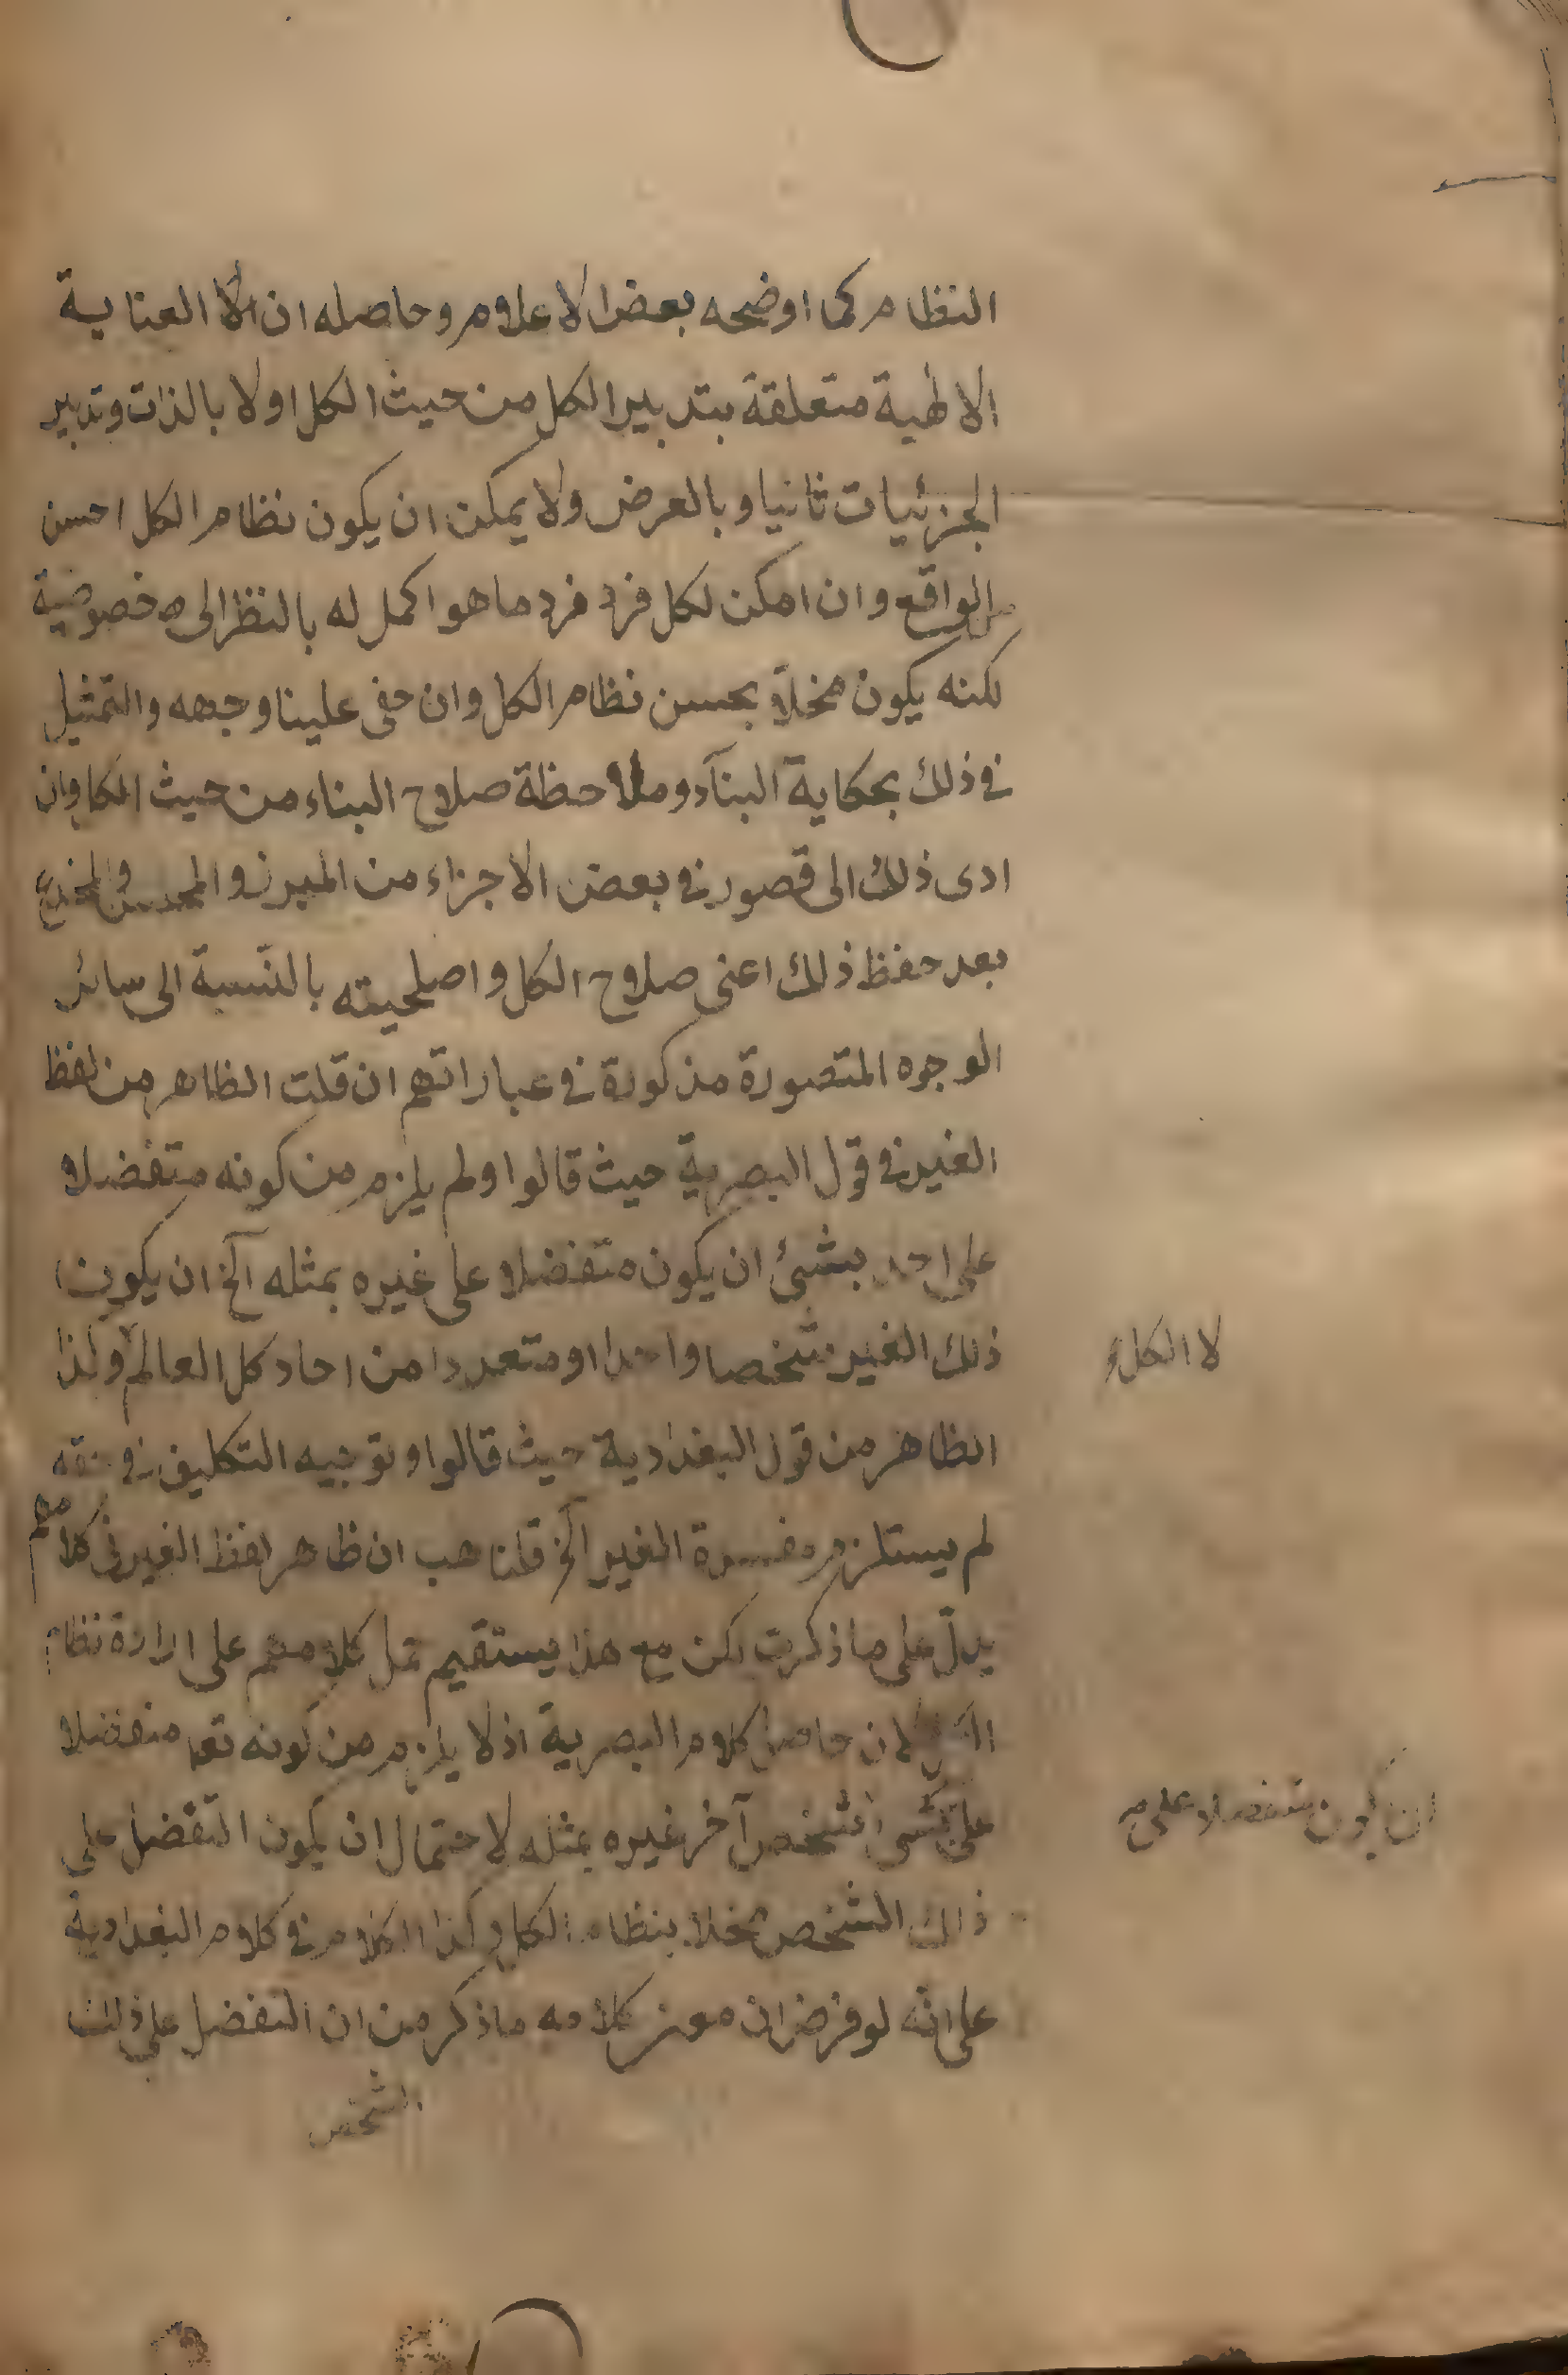 النظام كما اوضحه بعض الاعلام وحاصله ان العناية
الالهية متعلقة بتدبير الكل من حيث الكل اولا بالذات وتدبير
الجزئيات ثانيا وبالعرض ولا يمكن ان يكون نظام الكل احسن
من الواقع وان امكن لكل فرد فرد ما هو اكمل له بالنظر الى خصوصية
لكنه يكون مخلا بحسن نظام الكل وان خفى علينا وجهه والتمثيل
فى ذلك بحكاية البناء وملاحظة صلاح البناء من حيث الكل وان
ادى ذلك الى قصور فى بعض الاجزاء من المبرز و
بعد حفظ ذلك اعنى صلاح الكل واصلحيته بالنسبة الى سائر
الوجوه المتصورة مذكورة فى عباراتهم ان قلت الظاهر من لفظ
الغير فى قول البصرية حيث قالوا ولم يلزم من كونه متفضلا
على احد بشئ ان يكون متفضلا على غيره بمثله آلخ ان يكون
ذلك الغير شخصا واحدا او متعددا من احاد كل العالم ولذا
لا الكل
الظاهر من قول البغدادية حيث قالوا وتوجيه التكليف فى حقه
لم يستلزم مفسدة الغير آلخ قلنا هب ان ظاهر لفظ الغير فى كلامهم
يدلّ على ما ذكرت لكن مع هذا يستقيم حمل كلامهم على ارادة نظام
الكل لان حاصل كلام البصرية اذ لا يلزم من كونه تعا متفضلا
على بشئ شخص آخر غيره بمثله لاحتمال ان يكون التفضل على
ان يكون متفضلا على
ذلك الشخص مخلا بنظام الكل وكذا الكلام فى كلام البغدادية
على انّه لو فرض ان معنى كلامه ما ذكر من ان التفضل على ذلك
الشخص